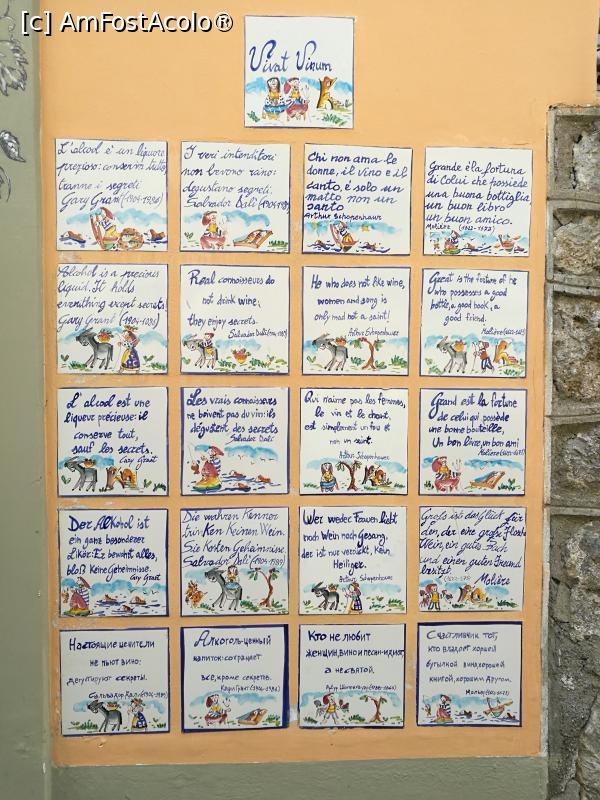 [c] AmFostAcolo®
Vivat Vinum
L'alcol è un liquore
prezioso: conserva tutto
tranne i segreti.
Gary Grant (1904-1986)
I veri intenditori
non bevono vino:
degustano segreti.
Salvador Dalì (1904-1989)
Chi non ama le
donne, il vino e il
canto, è solo un
matto non un
santo
Arthur Schopenhaur
Grande è la fortuna
di Colui che possiede
una buona bottiglia
un buon libro
un buon amico.
Molière (1622-1673)
Alcohol is a precious
liquid. It holds
everithing except secrets.
Gary Grant (1904-1986)
Real connoisseurs do
not drink wine;
they enjoy secrets.
Salvador Dalì (1904-1989)
He who does not like wine,
women and song is
only mad not a saint!
Arthur Schopenhauer
Great is the fortune of he
who possesses a good
bottle, a good book, a
good friend.
Molière (1622-1673)
L'alcool est une
liqueur précieuse: il
conserve tout,
sauf les secrets.
Cary Grant
Les vrais connoisseurs
ne boivent pas du vin: ils
dégustent des secrets
Salvador Dalì
Qui n'aime pas les femmes,
le vin et le chant,
est simplement un fou et
non un saint.
Arthur Schopenhauer
Grand est la fortune
de celui qui possède
une bonne bouteille,
Un bon livre, un bon ami
Molière (1622-1673)
Der Alkohol ist
ein ganz besonderer
Likör: Er bewahrt alles,
bloß Keine Geheimnisse.
Cary Grant
Die wahren Kenner
trinken Keinen Wein.
Sie Kosten Geheimnisse.
Salvador Dalì (1904-1989)
Wer weder Frauen liebt
noch Wein noch Gesang,
der ist nur verrückt, Kein
Heiliger.
Arthur Schopenhauer
Groß ist das Glück für
den, der eine große Flasche
Wein, ein gutes Buch
und einen guten Freund
besitzt.
Molière
Настоящие ценители
не пьют вино:
дегустируют секреты.
Сальвадор Дали (1904-1989)
Алкоголь-ценный
напиток: сохраняет
всё, кроме секретов.
Кэри Грант (1904-1986)
Кто не любит
женщин, вино и песни-идиот,
а не святой.
Артур Шопенгауэр (1788-1860)
Счастливчик тот,
кто владеет хорошей
бутылкой вина, хорошей
книгой, хорошим другом.
Мольер (1622-1673)